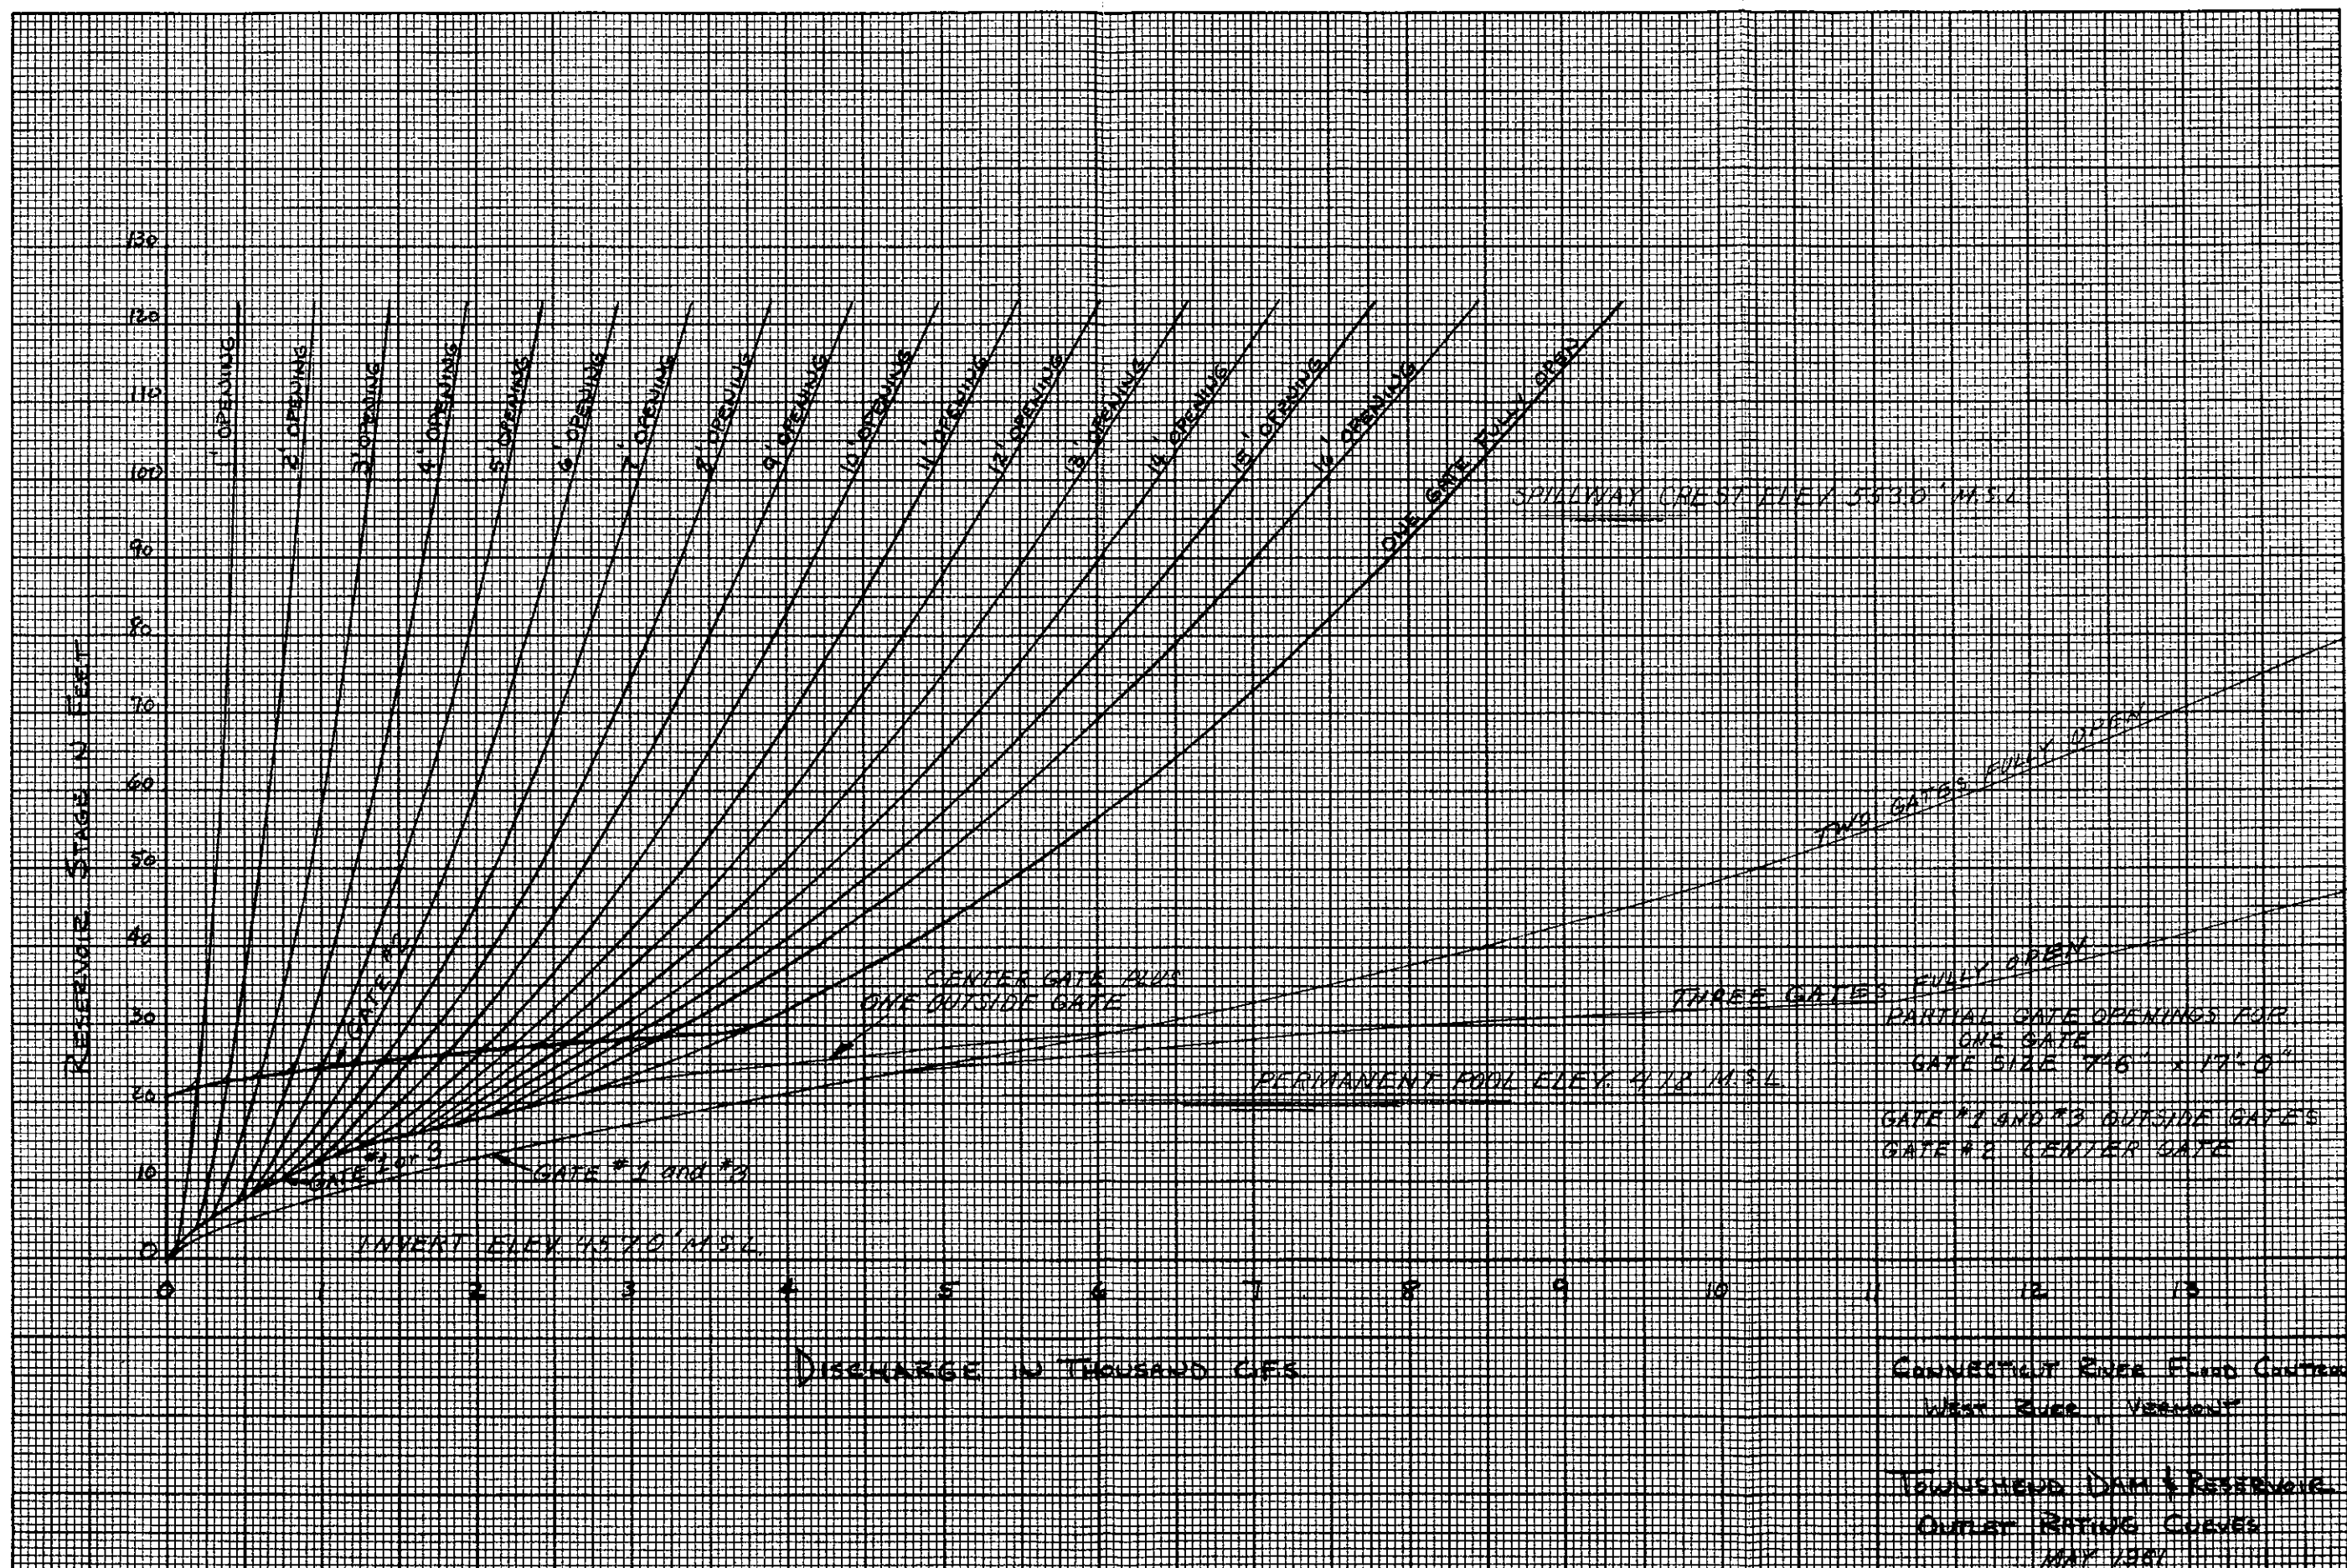 130
120
110
100
90
80
70
60
50
40
30
20
10
0
RESERVOIR STAGE IN FEET
1' OPENING
2' OPENING
3' OPENING
4' OPENING
5' OPENING
6' OPENING
7' OPENING
8' OPENING
9' OPENING
10' OPENING
11' OPENING
12' OPENING
13' OPENING
14' OPENING
15' OPENING
16' OPENING
ONE GATE FULLY OPEN
SPILLWAY CREST ELEV 553.0' M.S.L.
TWO GATES FULLY OPEN
THREE GATES FULLY OPEN
GATE #2
CENTER GATE PLUS
ONE OUTSIDE GATE
PARTIAL GATE OPENINGS FOR
ONE GATE
GATE SIZE 7'-6" x 17'-0"
PERMANENT POOL ELEV. 478' M.S.L.
GATE #1 AND #3 OUTSIDE GATES
GATE #2 CENTER GATE
GATE #1 or 3
GATE #1 and #3
INVERT ELEV 457.0' M.S.L.
0 1 2 3 4 5 6 7 8 9 10 11 12 13
DISCHARGE IN THOUSAND C.F.S.
CONNECTICUT RIVER FLOOD CONTROL
WEST RIVER, VERMONT
TOWNSHEND DAM & RESERVOIR
OUTLET RATING CURVES
MAY 1961